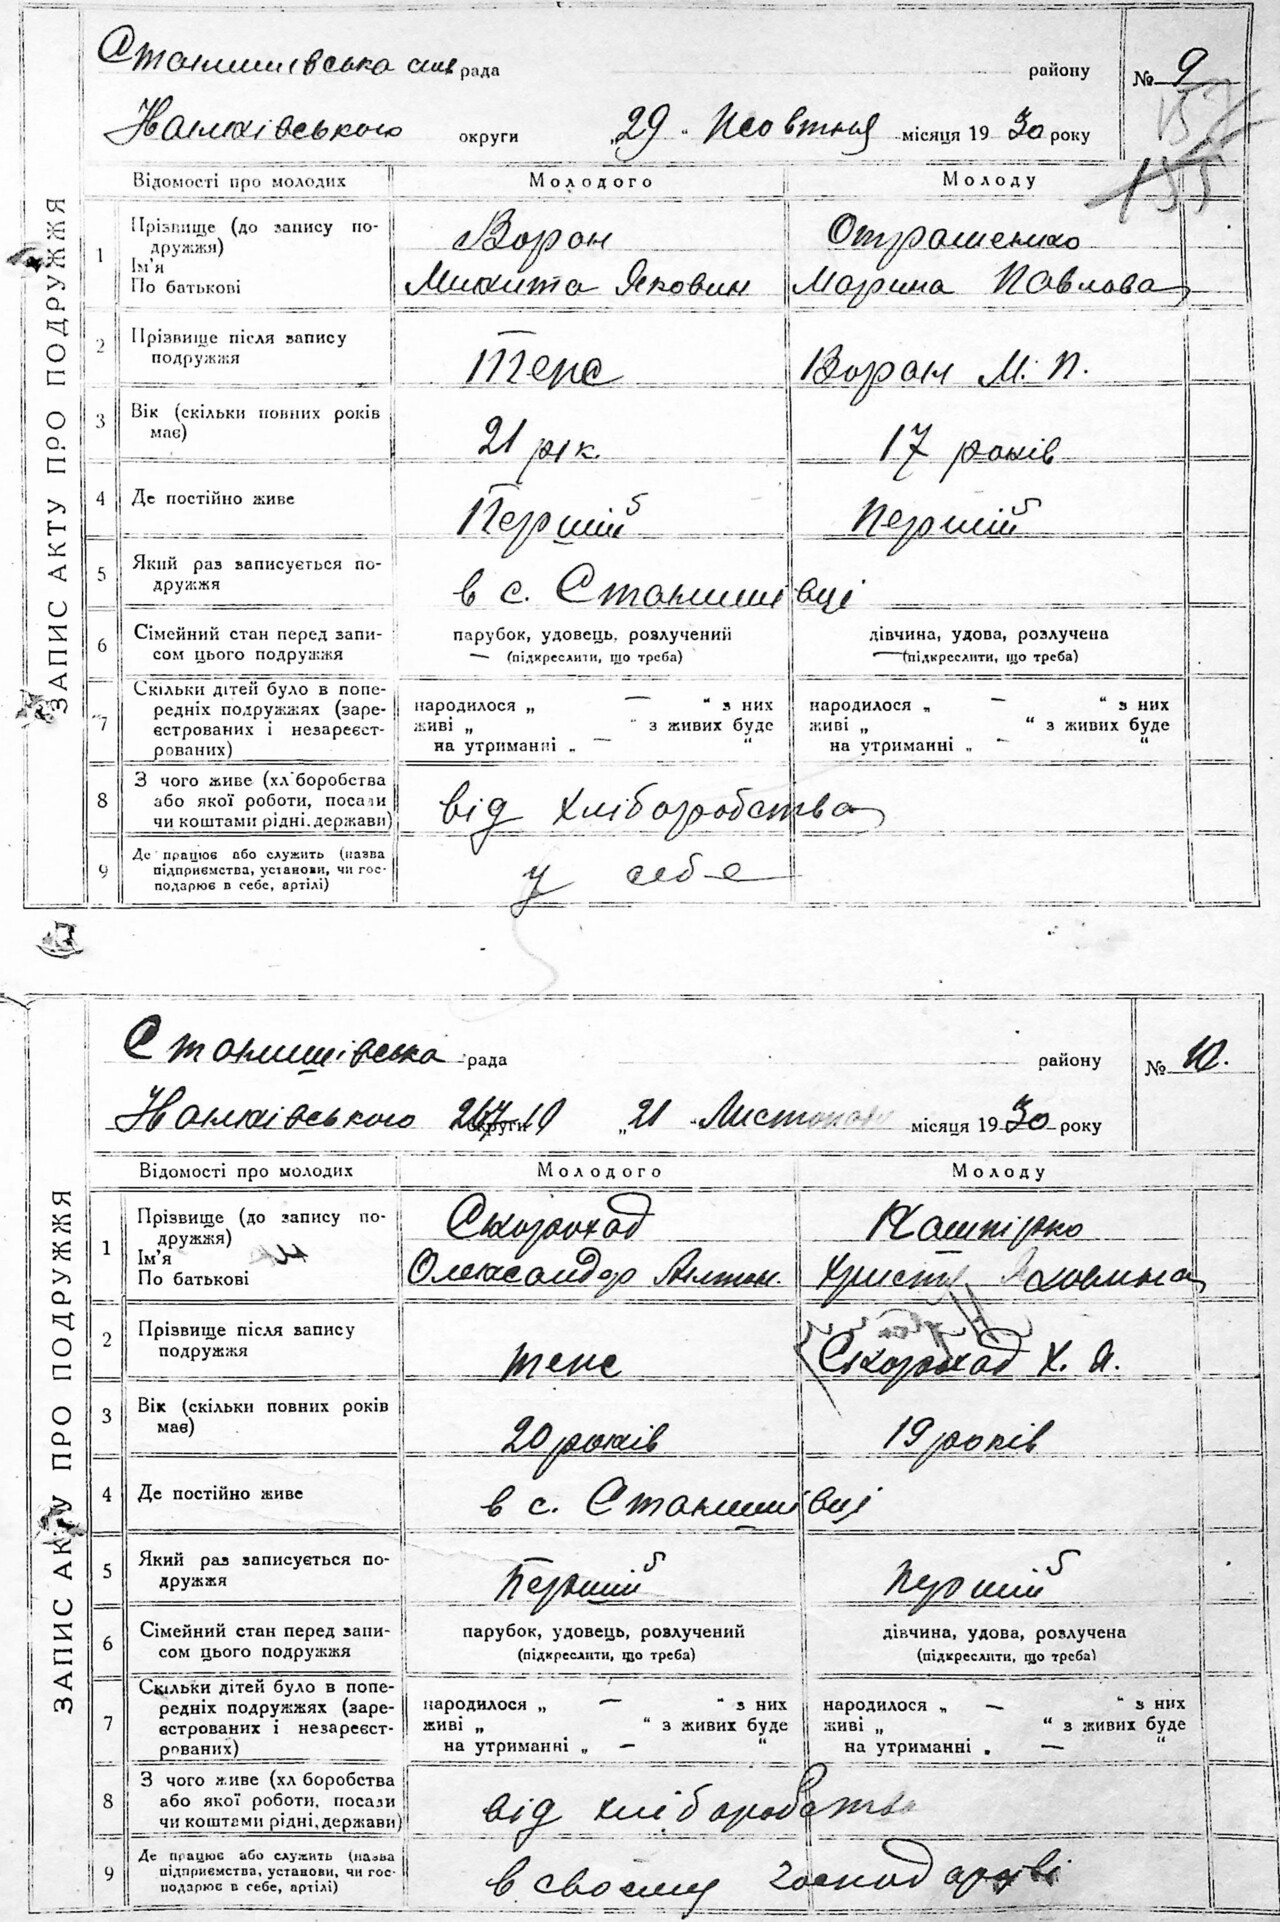 ЗАПИС АКТУ ПРО ПОДРУЖЖЯ
Станишівська сільрада району № 9
округи „29“ Жовтня місяця 1930 року
155
Відомості про молодих Молодого Молоду
1 Прізвище (до запису по- Ворон
дружжя)
Ім'я
По батькові Микита Якович Марина Павлова
2 Прізвище після запису
подружжя Теж Ворон М. П.
3 Вік (скільки повних років
має) 21 рік. 17 років
4 Де постійно живе Перший Перший
5 Який раз записується по-
дружжя в с. Станишівці
6 Сімейний стан перед запи- парубок, удовець, розлучений дівчина, удова, розлучена
сом цього подружжя — (підкреслити, що треба) — (підкреслити, що треба)
7 Скільки дітей було в попе-
редніх подружжях (заре- народилося „ — “ з них народилося „ — “ з них
єстрованих і незареєст- живі „ “ з живих буде живі „ “ з живих буде
рованих) на утриманні „ — “ на утриманні „ — “
8 З чого живе (хл боробства
або якої роботи, посади від хліборобства
чи коштами рідні, держави)
9 Де працює або служить (назва
підприємства, установи, чи гос- у себе
подарює в себе, артілі)
ЗАПИС АКТУ ПРО ПОДРУЖЖЯ
Станишівська рада району № 10.
округи „21“ Листопада місяця 1930 року
Відомості про молодих Молодого Молоду
1 Прізвище (до запису по- Скороход Кашпірко
дружжя)
Ім'я
По батькові Олександр Антон. Христя Яковина
2 Прізвище після запису
подружжя теж Скороход Х. Я.
3 Вік (скільки повних років
має) 20 років 19 років
4 Де постійно живе в с. Станишівці
5 Який раз записується по-
дружжя Перший Перший
6 Сімейний стан перед запи- парубок, удовець, розлучений дівчина, удова, розлучена
сом цього подружжя (підкреслити, що треба) (підкреслити, що треба)
7 Скільки дітей було в попе-
редніх подружжях (заре- народилося „ — “ з них народилося „ — “ з них
єстрованих і незареєст- живі „ “ з живих буде живі „ “ з живих буде
рованих) на утриманні „ — “ на утриманні „ — “
8 З чого живе (хл боробства
або якої роботи, посади від хліборобства
чи коштами рідні, держави)
9 Де працює або служить (назва
підприємства, установи, чи гос- в своєму господарстві
подарює в себе, артілі)